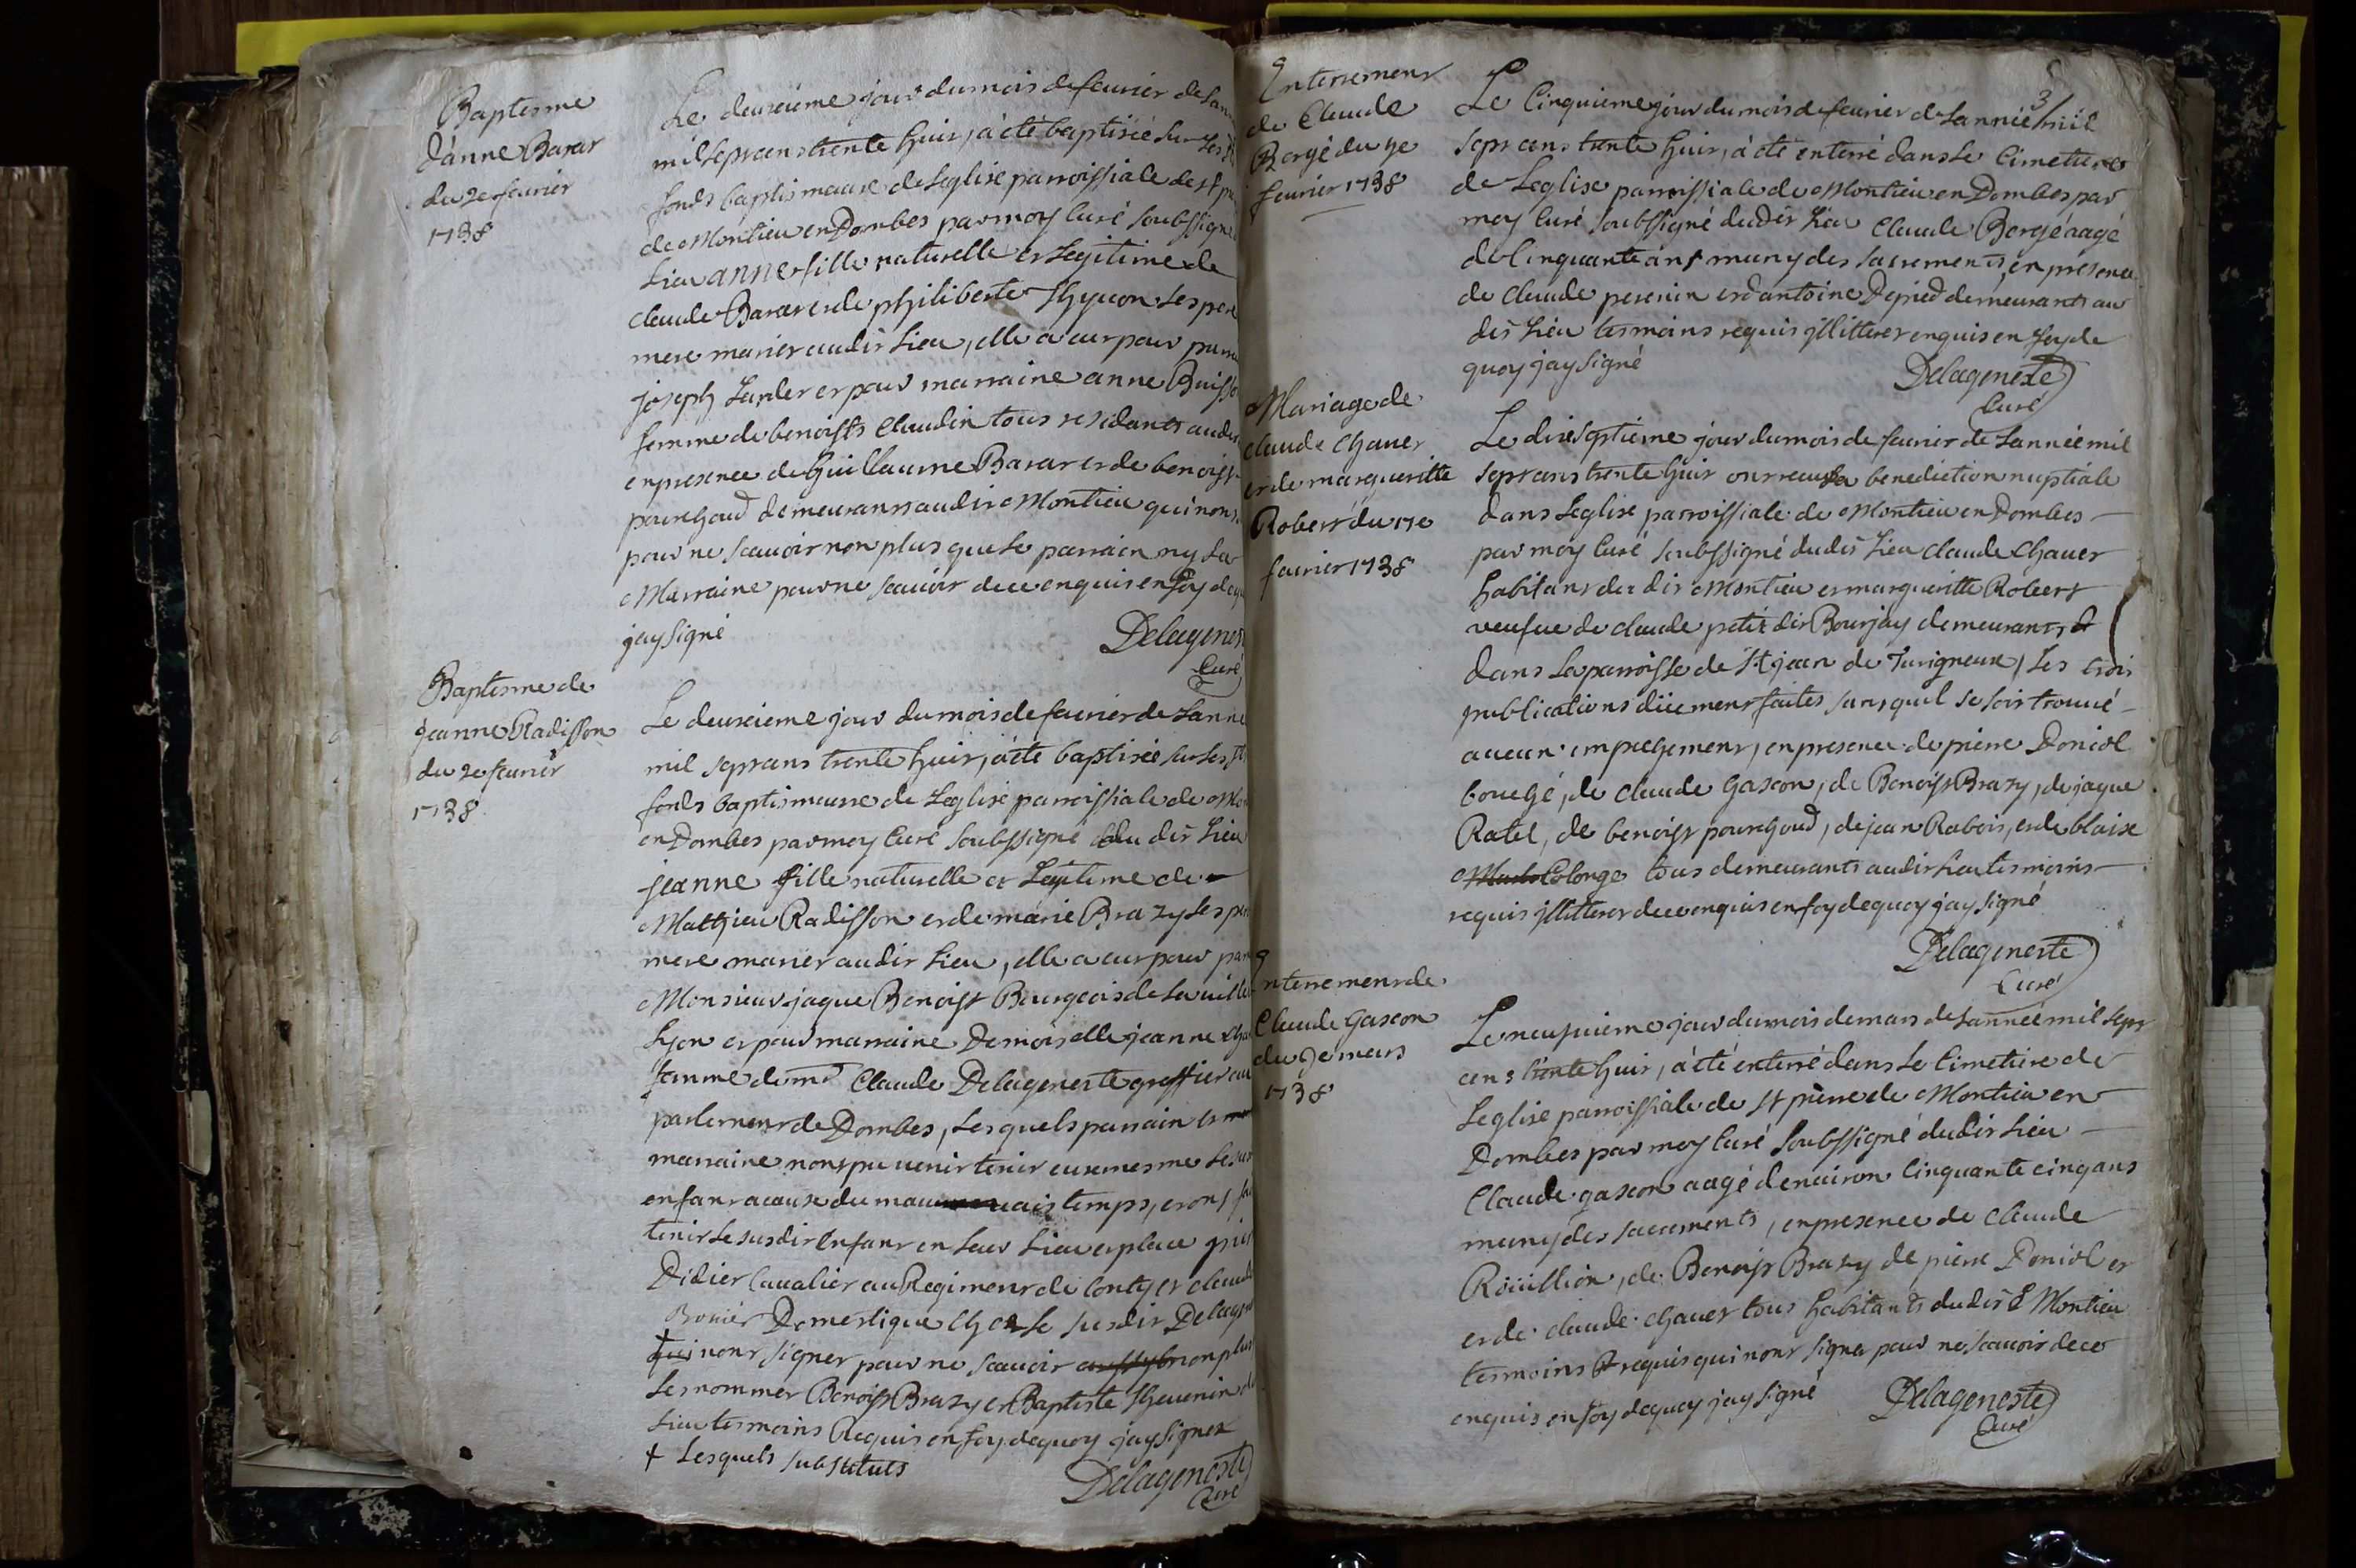 Baptesme
d'anne Barar
du 2e feurier
1738
Le deuxieme jour du mois de feurier de Lan
mil sept cens trente huit, à été baptisée sur Les
fonds baptismaux de Leglise parroissiale de St
de Montieu en Dombes par moy Curé soubssigné
Lieu anne fille naturelle et Legitime de
claude Barar et de philiberte Thyuon Ses pere
mere mariez audit Lieu, elle a eut pour
joseph Larder et pour marraine anne Buisso
femme de benoists Claudin tous residants audit
en presence de Guillaume Barar et de benoist
pourchoud demeurants audit Montieu qui nont
pour ne scauoir non plus que Le parrain ny La
Marraine pour ne scauoir de ce enquis en foy de
jay signé
Delagenes
Curé
Baptesme de
jeanne Radisson
du 2e feurier
1738
Le deuxieme jour du mois de feurier de Lanne
mil sept cens trente huit, à été baptisée sur Les
fonds baptismaux de Leglise parroissiale de Mon
en Dombes par moy Curé soubssigné du dit Lieu
jeanne fille naturelle et Legitime de
Matthieu Radisson et de marie Brazy Ses pere
mere mariez audit Lieu, elle a eut pour par
Monsieur jaque Benoist Bourgeois de La uille
Lyon et pour marraine Demoiselle jeanne
femme de mr Claude Delageneste greffier au
parlement de Dombes, Lesquels parrain et
marraine nont pu uenir tenir eux mesme Le
enfant a cause du mauuais temps, et ont
tenir Le susdit Enfant en Leur Lieu et place
Didier Caualier au Regiment de Conty et claud
Bonier Domestique chez Le susdit Delagen
qui nont signer pour ne scauoir non plus
Les nommer Benoist Brazy et Baptiste Theuenin
Lieu tesmoins Requis en foy de quoy jay signer
+ Lesquels substituts
Delageneste
Curé
Enterrement
de Claude
Bergé du 5e
feurier 1738
3
Le Cinquieme jour du mois de feurier de Lannée mil
sept cens trente huit, à été enterré dans Le Cimetiere
de Leglise parroissiale de Montieu en Dombes par
moy Curé soubssigné dudit Lieu Claude Bergé aagé
de Cinquante ans muny des sacrements, en presence
de claude perenin et d'antoine Depied demeurants au
dit Lieu tesmoins requis illitterez enquis en foy de
quoy jay signé
Delageneste
Curé
Mariage de
claude Chauer
et de margueritte
Robert du 17e
feurier 1738
Le dixseptieme jour du mois de feurier de Lannée mil
sept cens trente huit ont receu La benediction nuptiale
dans Leglise parroissiale de Montieu en Dombes
par moy Curé soubssigné dudit Lieu claude Chauer
habitant du dit Montieu et margueritte Robert
veufue de claude petit dit Bourjay demeurants
dans La parroisse de St jean de Turigneux, Les trois
publications düement faites sans quil se soit trouué
aucun empechement, en presence de pierre Doniol
bouché, de claude Gascon, de Benoist Brazy, de jaque
Ratel, de benoist pourchoud, de jean Rabois, et de blaise
Colonge tous demeurants audit Lieu tesmoins
requis illitterez de ce enquis en foy de quoy jay signé
Delageneste
Curé
Enterrement de
Claude Gascon
du 9e mars
1738
Le neufuieme jour du mois de mars de Lannée mil sept
cens trente huit, à été enterré dans Le Cimetiere de
Leglise parroissiale de St pierre de Montieu en
Dombes par moy Curé soubssigné dudit Lieu
Claude gascon aagé denuiron Cinquante cinq ans
muny des sacrements, en presence de Claude
Roüillion, de Benoist Brazy de pierre Doniol et
et de claude chauer tous habitants dudit Montieu
tesmoins requis qui nont signer pour ne scauoir de ce
enquis en foy de quoy jay signé
Delageneste
Curé